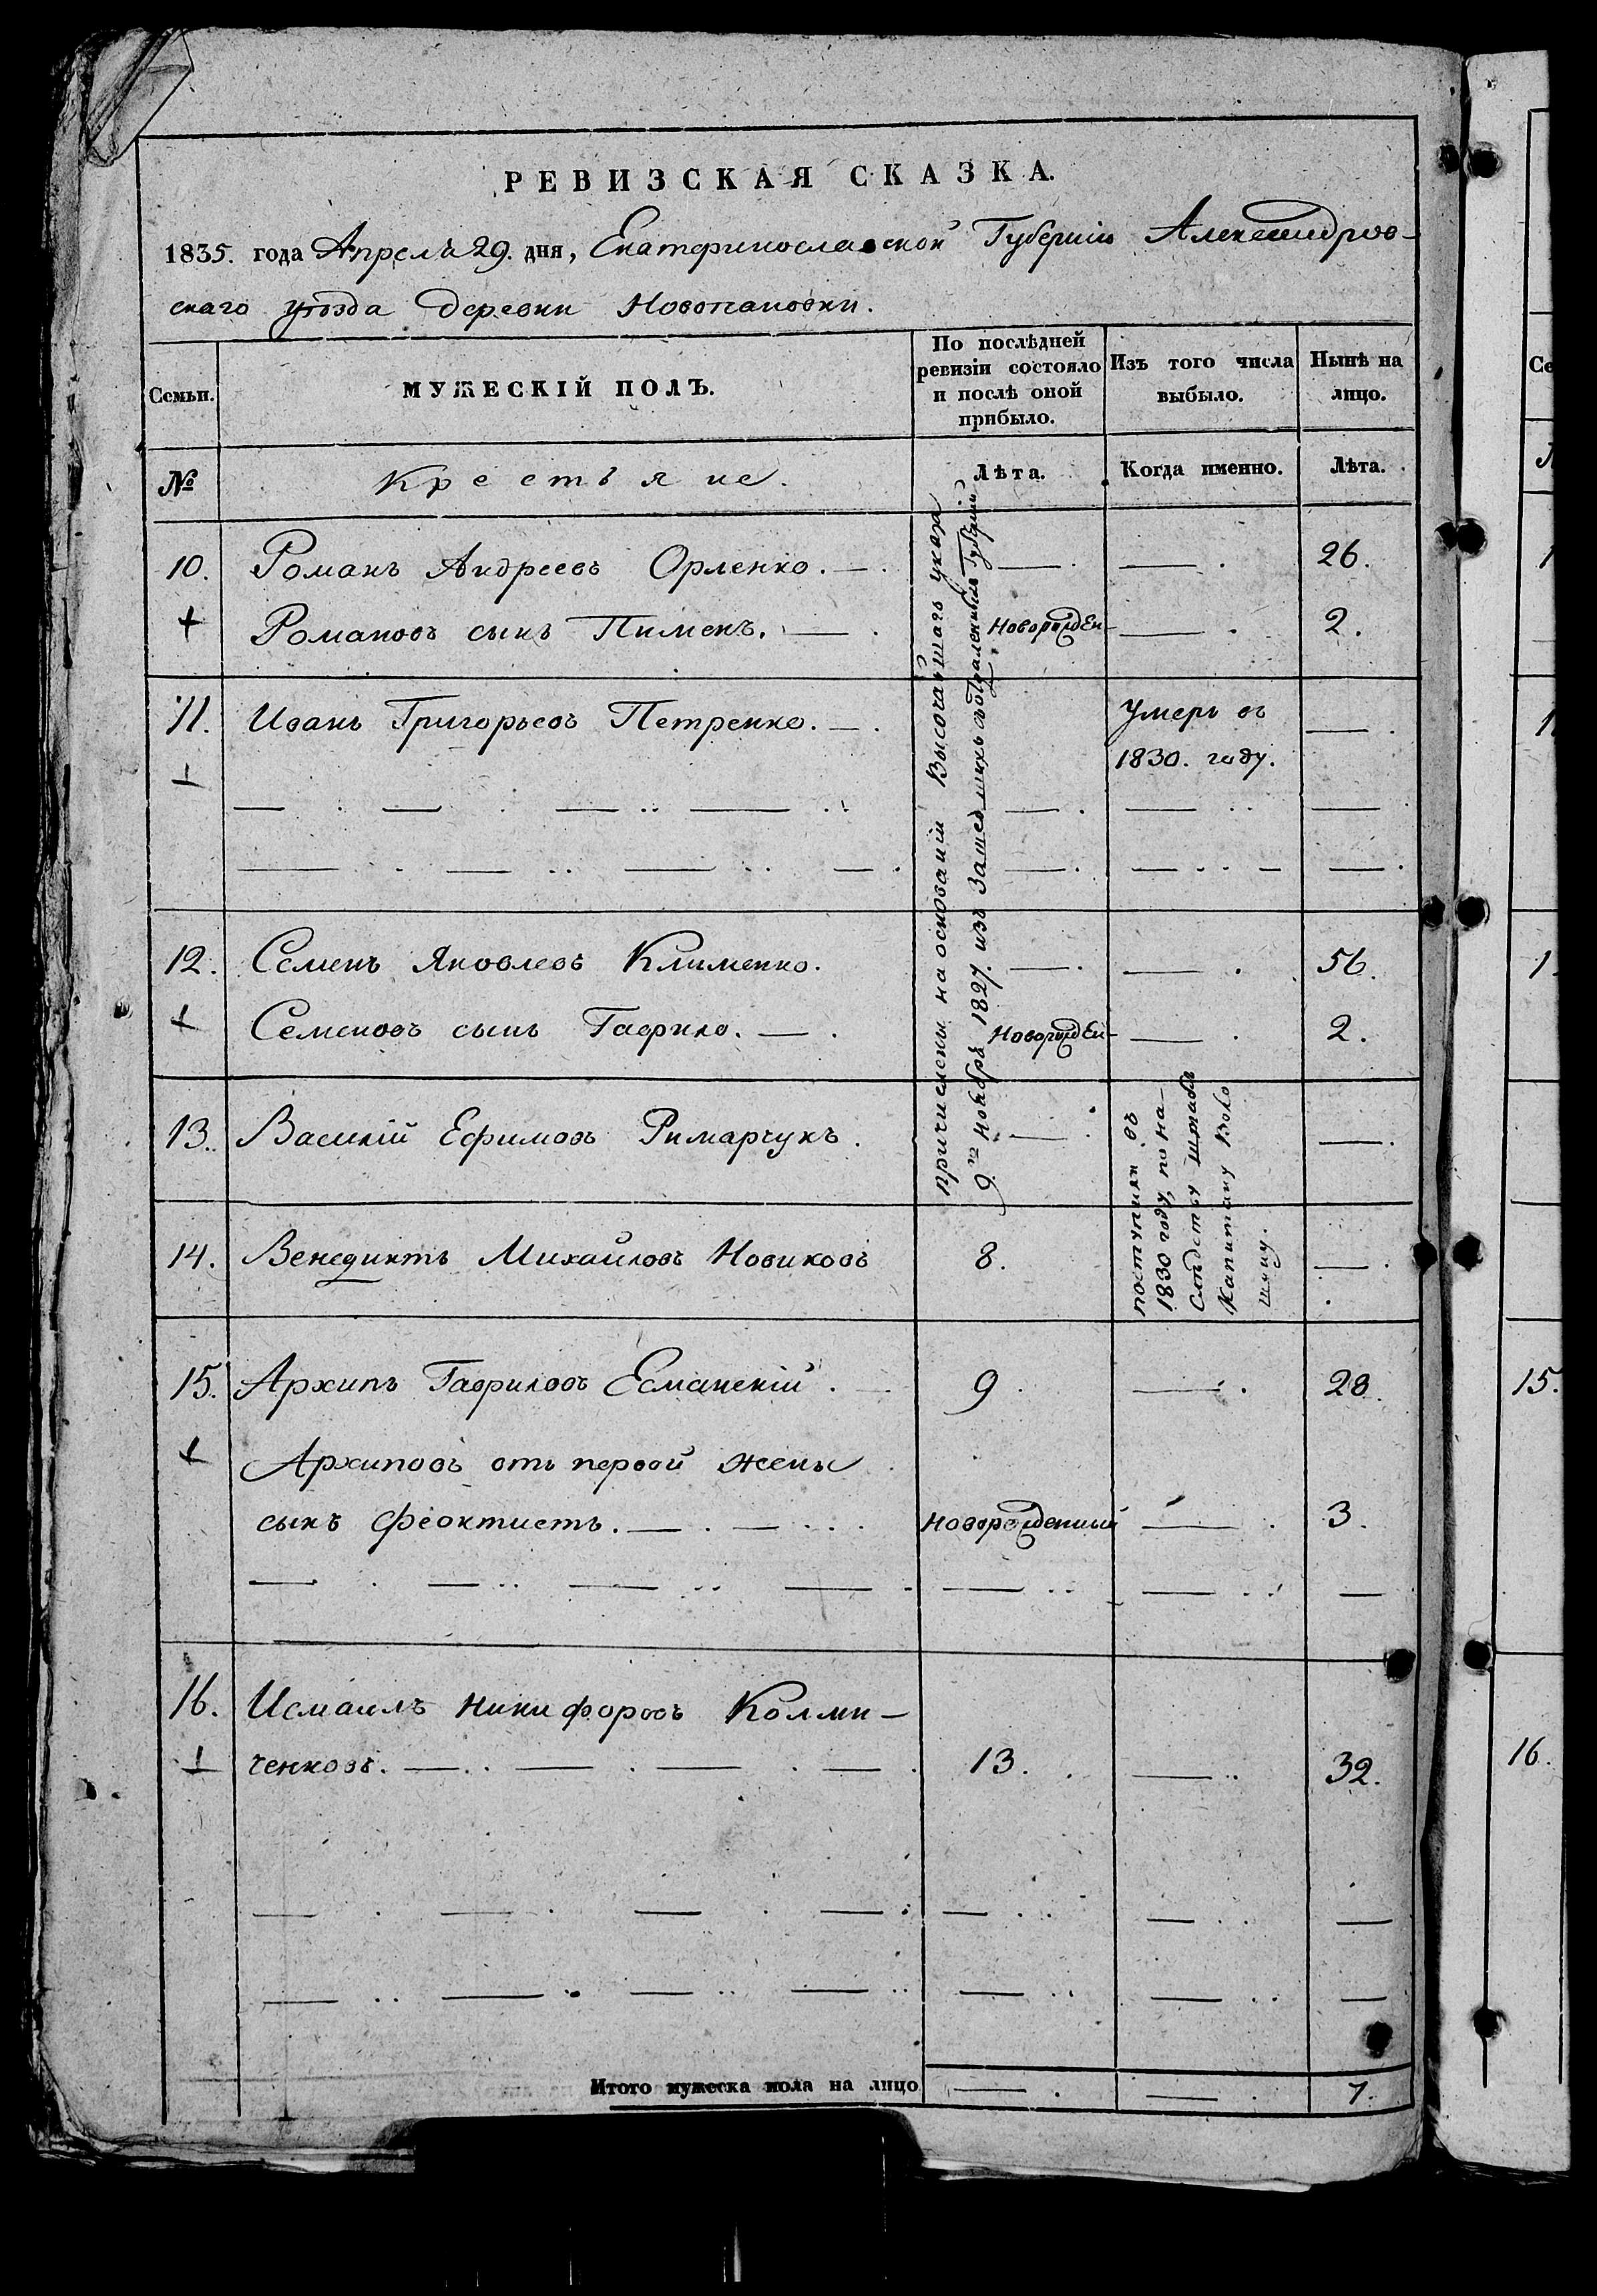 РЕВИЗСКАЯ СКАЗКА.
1835. года Апреля 29. дня, Екатеринославской Губерніи Александров-
скаго уѣзда деревни Новопановки.
Семьи.
МУЖЕСКІЙ ПОЛЪ.
По послѣдней
ревизіи состояло
и послѣ оной
прибыло.
Изъ того числа
выбыло.
Нынѣ на
лицо.
№
Крестьяне.
Лѣта.
Когда именно.
Лѣта.
причислены на основаніи Высочайшаго указа
9го ноября 1827. изъ Зашедшихъ съ отдаленныхъ Губерній
10. Романъ Андреевъ Орленко. — . — . — . 26.
+ Романовъ сынъ Пименъ. — . Новорожден — . 2.
11. Иванъ Григорьевъ Петренко. — . Умеръ въ — .
1830. году.
12. Семенъ Яковлевъ Клименко. — . — . 56.
+ Семеновъ сынъ Гаврило. — . Новорожден — . 2.
13. Василій Ефимовъ Римарчукъ. — . — .
поступили въ
1830 году, по на-
слѣдству штабъ
Капитану Воло
шину.
14. Венедиктъ Михайловъ Новиковъ 8. — .
15. Архипъ Гавриловъ Есманскій . 9 . — . 28
+ Архиповъ отъ первой жены
сынъ Феоктистъ. — . — . . . новорожденный — . 3.
16. Исмаилъ Никифоровъ Колми-
ченковъ. — . . — . — . — . 13. — .. 32.
Итого мужеска пола на лицо — . — . 7.
Се
1
1
1
15.
16.